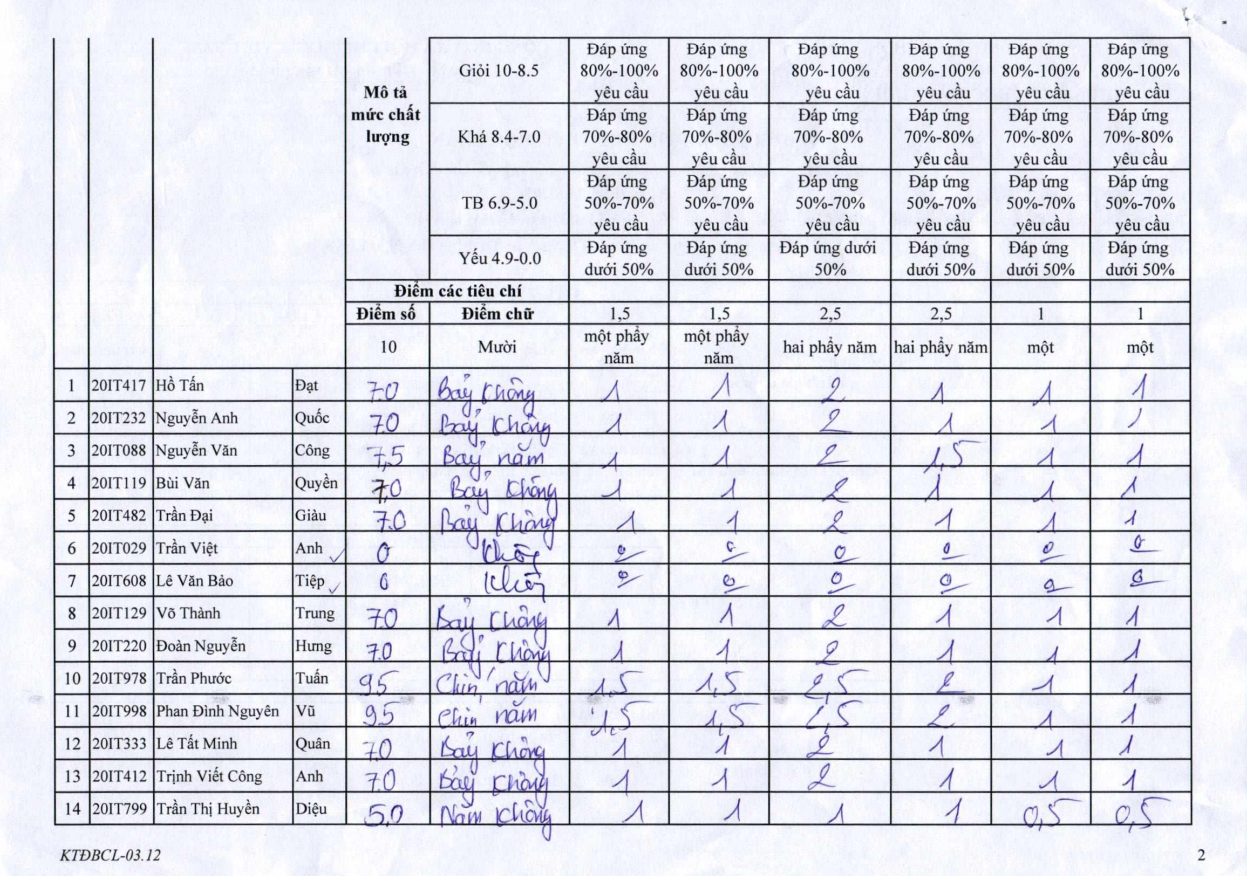 Mô tả mức chất lượng
Giỏi 10-8.5 Đáp ứng 80%-100% yêu cầu Đáp ứng 80%-100% yêu cầu Đáp ứng 80%-100% yêu cầu Đáp ứng 80%-100% yêu cầu Đáp ứng 80%-100% yêu cầu Đáp ứng 80%-100% yêu cầu
Khá 8.4-7.0 Đáp ứng 70%-80% yêu cầu Đáp ứng 70%-80% yêu cầu Đáp ứng 70%-80% yêu cầu Đáp ứng 70%-80% yêu cầu Đáp ứng 70%-80% yêu cầu Đáp ứng 70%-80% yêu cầu
TB 6.9-5.0 Đáp ứng 50%-70% yêu cầu Đáp ứng 50%-70% yêu cầu Đáp ứng 50%-70% yêu cầu Đáp ứng 50%-70% yêu cầu Đáp ứng 50%-70% yêu cầu Đáp ứng 50%-70% yêu cầu
Yếu 4.9-0.0 Đáp ứng dưới 50% Đáp ứng dưới 50% Đáp ứng dưới 50% Đáp ứng dưới 50% Đáp ứng dưới 50% Đáp ứng dưới 50%
Điểm các tiêu chí
Điểm số Điểm chữ 1,5 1,5 2,5 2,5 1 1
10 Mười một phẩy năm một phẩy năm hai phẩy năm hai phẩy năm một một
1 20IT417 Hồ Tấn Đạt 7.0 Bảy Không 1 1 2 1 1 1
2 20IT232 Nguyễn Anh Quốc 7.0 Bảy Không 1 1 2 1 1 1
3 20IT088 Nguyễn Văn Công 7,5 Bảy, năm 1 1 2 1,5 1 1
4 20IT119 Bùi Văn Quyền 7,0 Bảy Không 1 1 2 1 1 1
5 20IT482 Trần Đại Giàu 7.0 Bảy Không 1 1 2 1 1 1
6 20IT029 Trần Việt Anh 0 Không 0 0 0 0 0 0
7 20IT608 Lê Văn Bảo Tiệp 0 Không 0 0 0 0 0 0
8 20IT129 Võ Thành Trung 7.0 Bảy Không 1 1 2 1 1 1
9 20IT220 Đoàn Nguyễn Hưng 7.0 Bảy Không 1 1 2 1 1 1
10 20IT978 Trần Phước Tuấn 9.5 Chín, năm 1,5 1,5 2,5 2 1 1
11 20IT998 Phan Đình Nguyên Vũ 9.5 Chín năm 1,5 1,5 2,5 2 1 1
12 20IT333 Lê Tất Minh Quân 7.0 Bảy Không 1 1 2 1 1 1
13 20IT412 Trịnh Viết Công Anh 7.0 Bảy Không 1 1 2 1 1 1
14 20IT799 Trần Thị Huyền Diệu 5,0 Năm Không 1 1 1 1 0,5 0,5
KTĐBCL-03.12
2